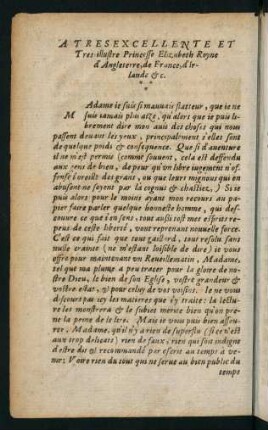 A TRESEXCELLENTE ET
Tres-illustre Princesse Elizabeth Royne
d'Angleterre, de France, d'Ir-
lande &c.
MAdame ie suis si mauuais flatteur, que ie ne
suis iamais plus aise, qu'alors que ie puis li-
brement dire mon auis des choses qui nous
passent deuant les yeux, principalement si elles sont
de quelque poids & consequence. Que si d'auenture
il ne m'est permis (comme souuent, cela est deffendu
aux gens de bien, de peur qu'vn libre iugement n'of-
fense l'oreille des grans, ou que leurs mignons qui en
abusent ne soyent par là cognus & chastiez,) Si ie
puis alors pour le moins ayant mon recours au pa-
pier faire parler quelque honneste homme, qui des-
couure ce que i'en sens, tout aussi tost mes esprits re-
peus de ceste liberté, vont reprenant nouuelle force.
C'est ce qui fait que tout gaillard, tout resolu sans
nulle crainte (ne m'estant loisible de dire) ie vous
offre pour maintenant vn Reueillematin, Madame,
tel que ma plume a peu tracer pour la gloire de no-
stre Dieu, le bien de son Eglise, vostre grandeur &
vostre estat, & pour celuy de voz voisins. Ie ne vous
discours pas icy les matieres que i'y traite: la lectu-
re les monstrera & le subiet merite bien qu'on pre-
ne la peine de le lire. Mais ie vous puis bien asseu-
rer, Madame, qu'il n'y a rien de superflu (si ce n'est
aux trop delicats) rien de faux, rien qui soit indigne
d'estre dit & recommandé par escrit au temps à ve-
nir: Voire rien du tout qui ne serue au bien public du
temps